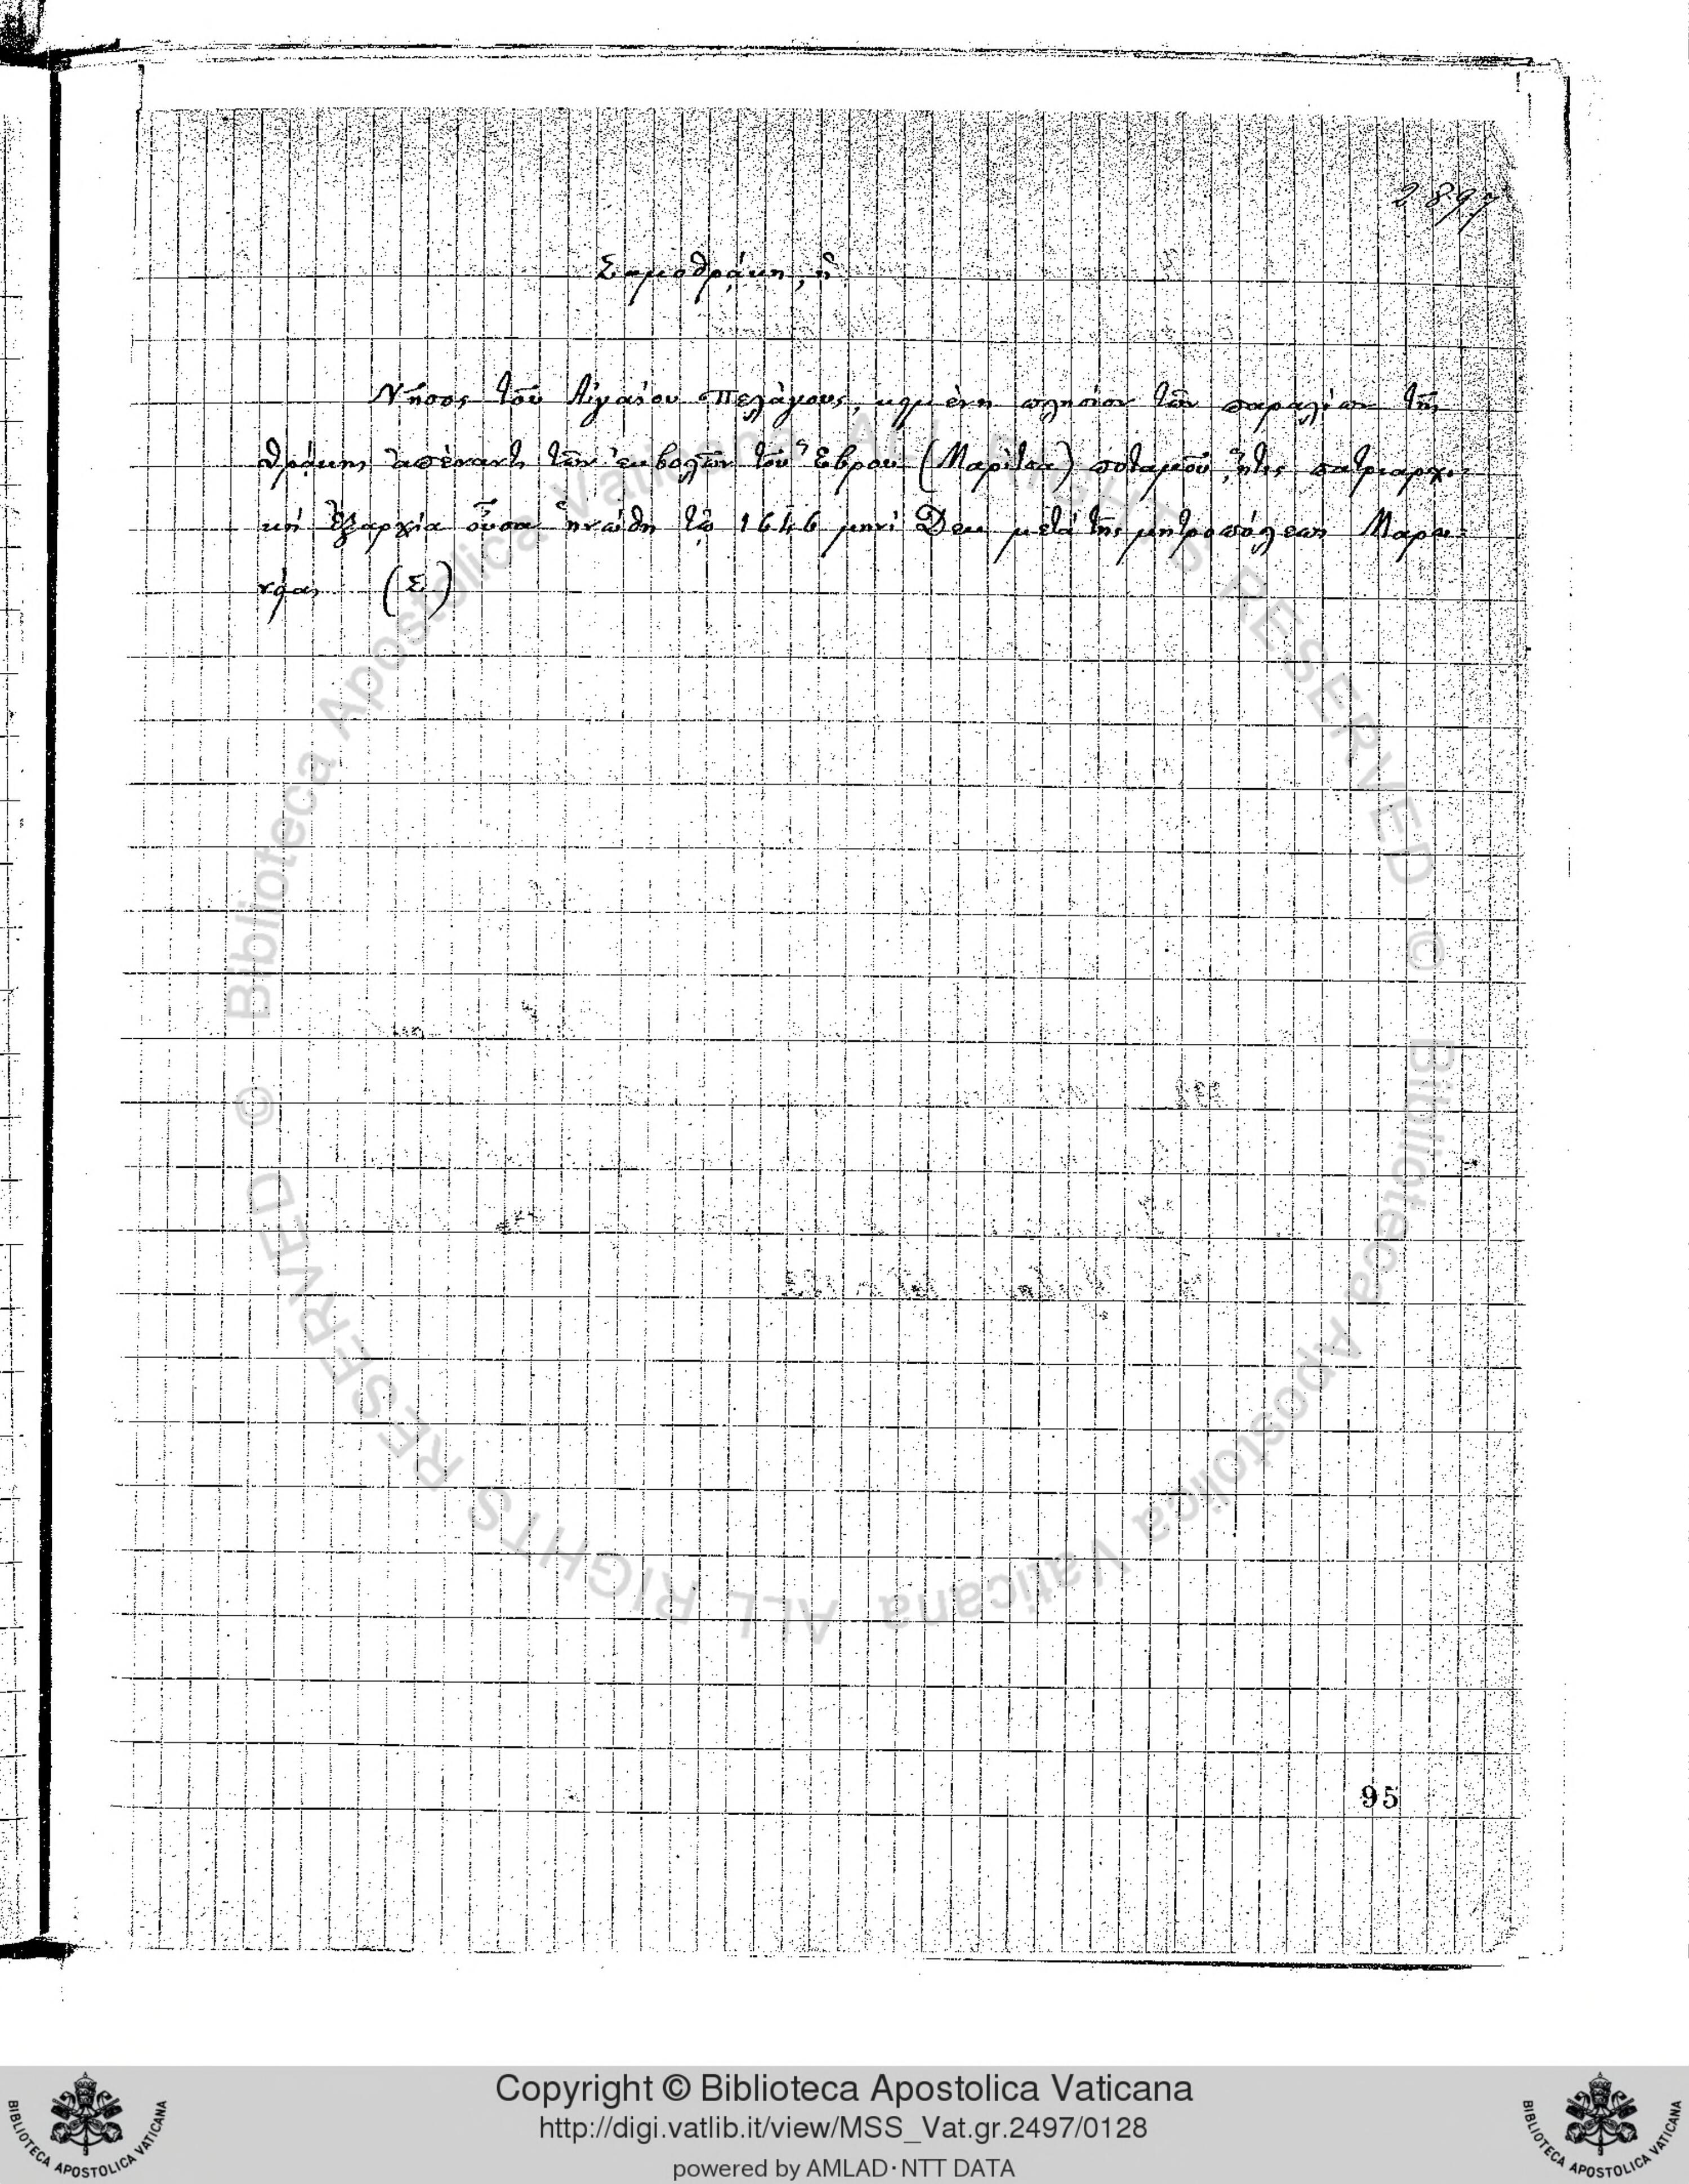 2897
Σαμοθράκη, ἡ
Νῆσος τοῦ Αἰγαίου Πελάγους, κειμένη πλησίον τῶν παραλίων τῆς
Θράκης ἀπέναντι τῶν ἐκβολῶν τοῦ Ἕβρου (Μαρίτσα) ποταμοῦ, ἥτις πατριαρχι-
κή ἐξαρχία οὖσα ἡνώθη τῷ 1646 μηνί Δεκ μετά τῆς μητροπόλεως Μαρω-
νείας (Σ)
95
© Biblioteca Apostolica Vaticana ALL RIGHTS RESERVED © Biblioteca Apostolica Vaticana ALL RIGHTS RESERVED
Copyright © Biblioteca Apostolica Vaticana
http://digi.vatlib.it/view/MSS_Vat.gr.2497/0128
powered by AMLAD·NTT DATA
BIBLIOTECA APOSTOLICA VATICANA
BIBLIOTECA APOSTOLICA VATICANA